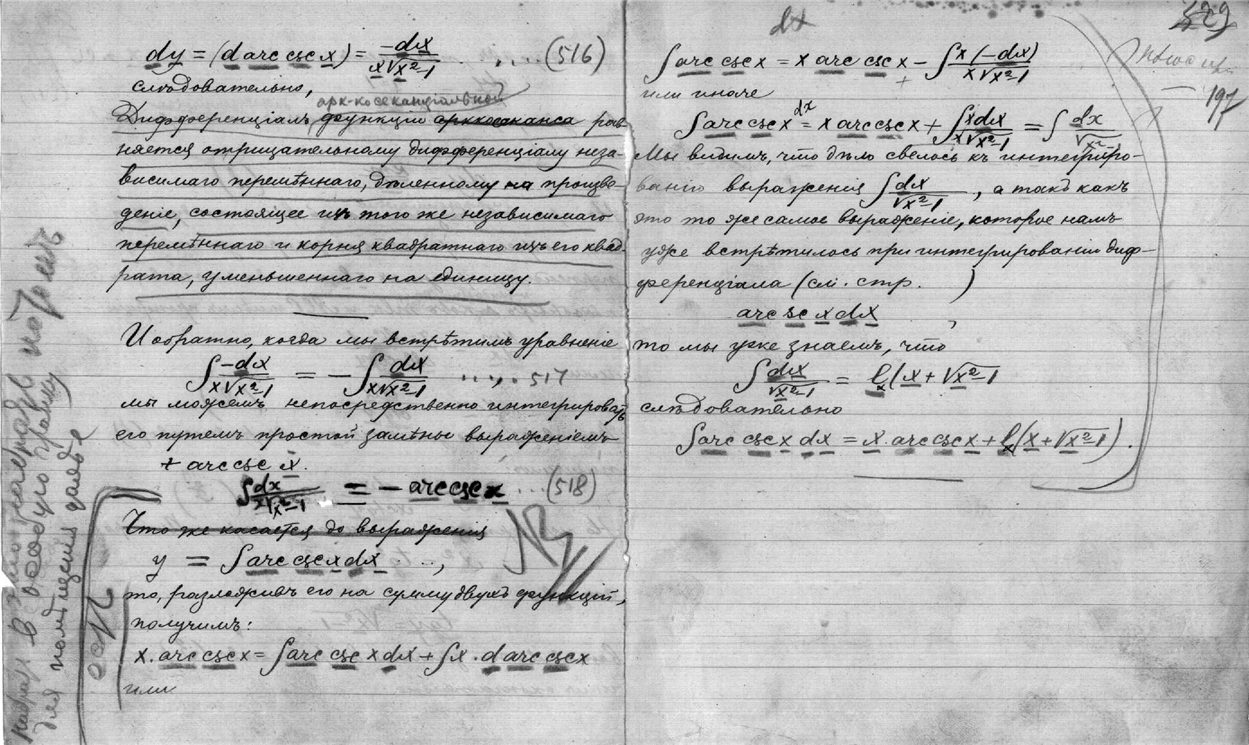 dy = (d arc csc x) = -dx / x√x²-1 ..... (516)
слѣдовательно,
арк-косекансіальной
Дифференціалъ функціи арккосеканса рав-
няется отрицательному дифференціалу неза-
висимаго перемѣннаго, дѣленному на произве-
деніе, состоящее изъ того же независимаго
перемѣннаго и корня квадратнаго изъ его квад-
рата, уменьшеннаго на единицу.
И обратно, когда мы встрѣтимъ уравненіе
∫ -dx / x√x²-1 = - ∫ dx / x√x²-1 ..... 517
мы можемъ непосредственно интегрировать
его путемъ простой замѣны выраженіемъ
+ arc csc x.
∫ dx / x√x²-1 = - arc csc x (518)
Что же касается до выраженія
y = ∫ arc csc x dx ...,
то, разложивъ его на сумму двухъ функцій,
получимъ:
x. arc csc x = ∫ arc csc x dx + ∫ x . d arc csc x
или
529
dx
∫ arc csc x = x arc csc x - ∫ x (-dx) / x√x²-1
или иначе
197
dx
∫ arc csc x = x arc csc x + ∫ xdx / x√x²-1 = ∫ dx / √x²-1
Мы видимъ, что дѣло свелось къ интегриро-
ванію выраженія ∫ dx / √x²-1 , а такъ какъ
это то же самое выраженіе, которое намъ
уже встрѣтилось при интегрированіи диф-
ференціала (см. стр. )
arc sc x dx ,
то мы уже знаемъ, что
∫ dx / √x²-1 = l(x + √x²-1
слѣдовательно
∫ arc csc x dx = x. arc csc x + l(x + √x²-1) .